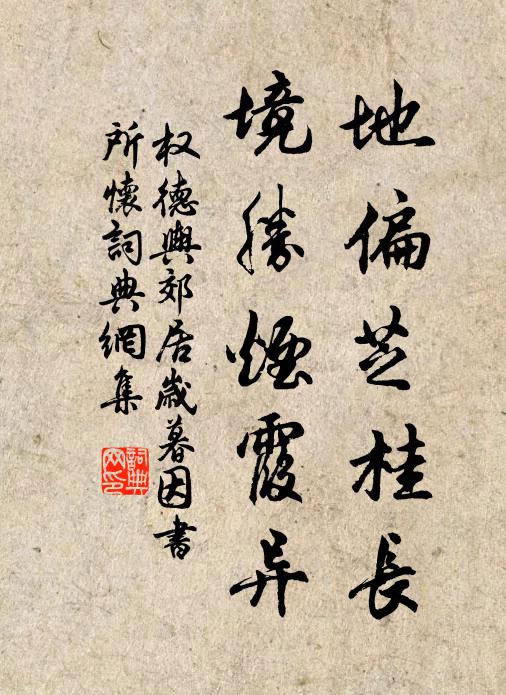 地偏芝桂長
境勝煙霞异
权德輿郊居歲暮因書
所懷詞典網集
詞典
网印